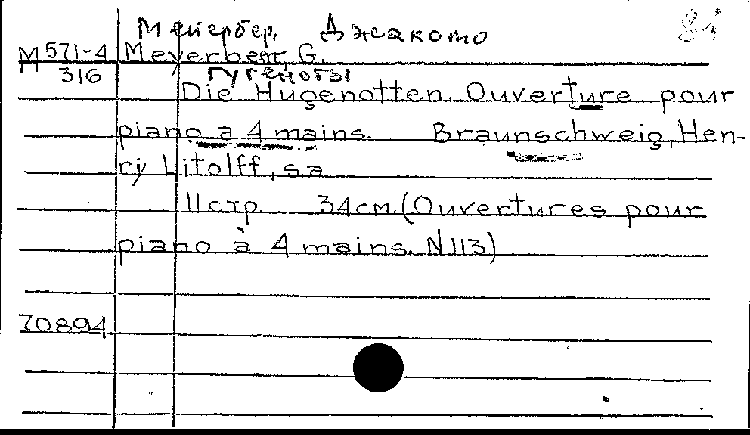 Мейербер, Джакомо
М 571-4 Meyerbeer, G.
316 Гугеноты
Die Hugenotten. Ouverture pour
piano à 4 mains. Braunschweig, Hen-
ry Litolff, s.a.
11 стр. 34 см. (Ouvertures pour
piano à 4 mains. N 113)
70894